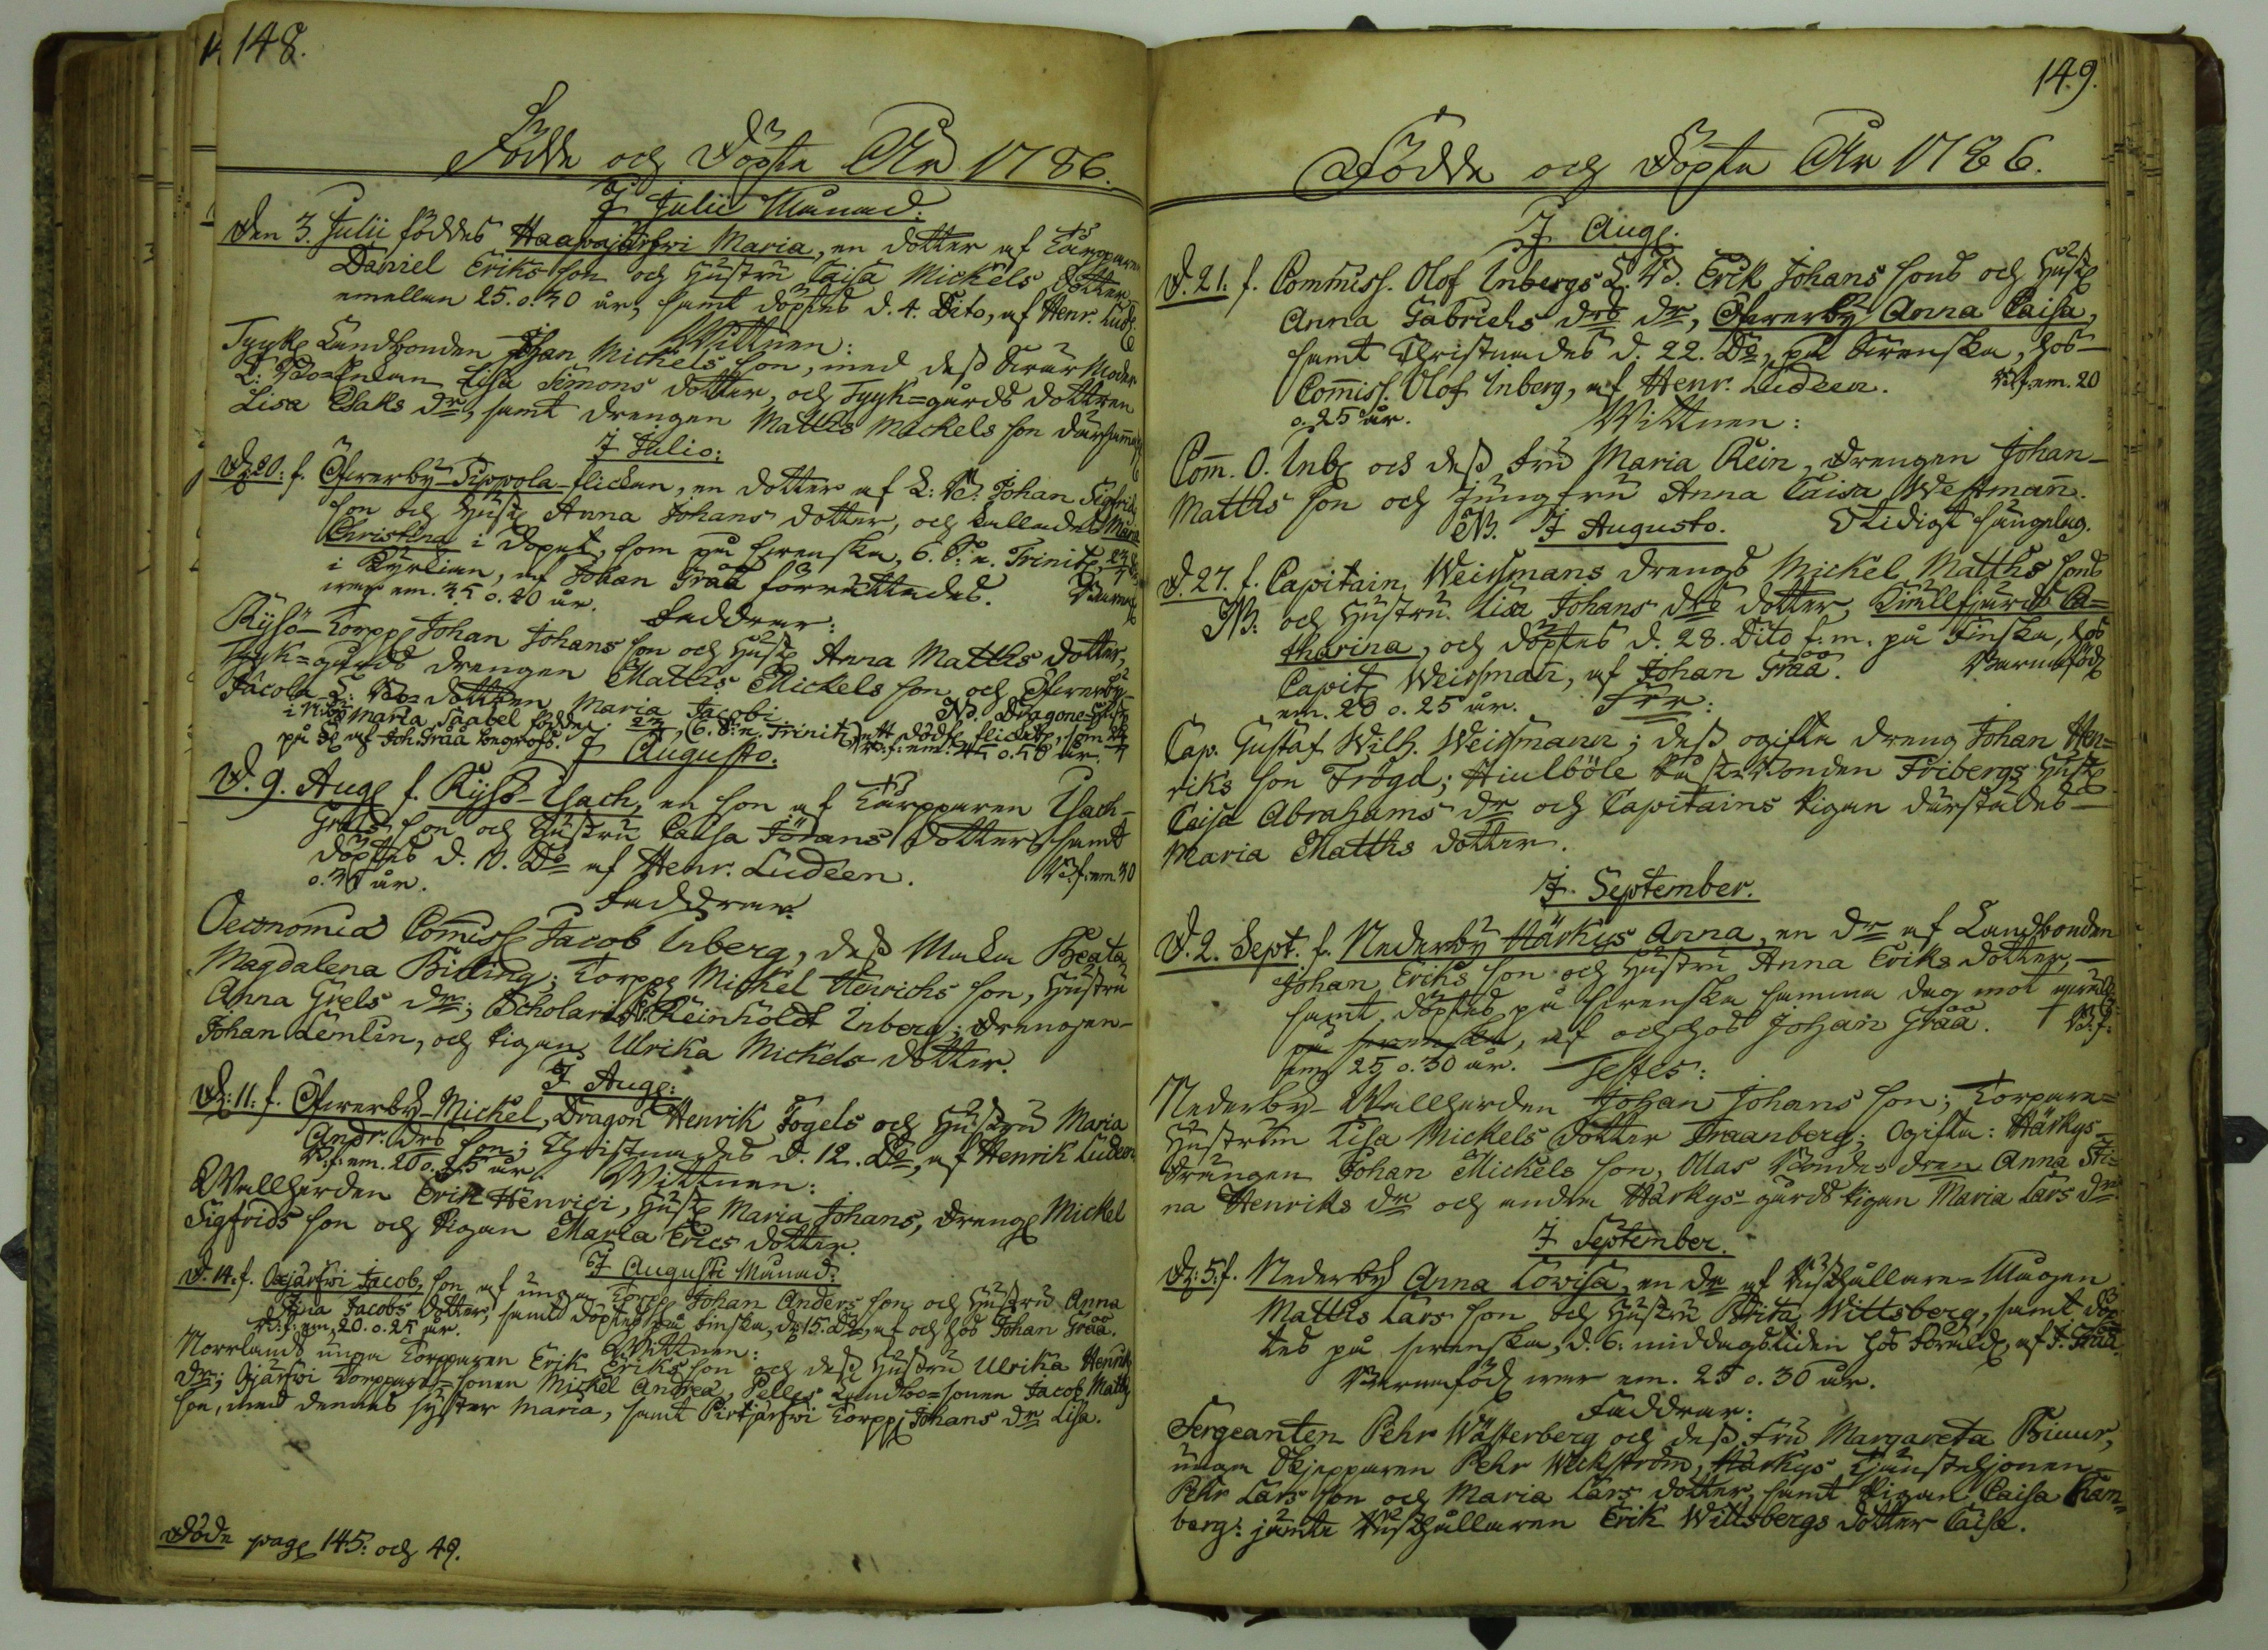 148.
Födde och Döpte År 1786.
I Julii Månad.
Den 3. Julii föddes Haapajärfwi Maria, en dotter af Torpparen
Daniel Eriks son och Hustru Caisa Mickels dotter,
emellan 25. o. 30 år, samt döptes d. 4. Dito, af Henr. Lud.
Wittnen:
Tyyk Landbonden Johan Mickels son, med dess Swär Moder
Enkan Lisa Simons dotter, och Tyyk=gårds dottren
Lisa Isaks dr, samt drengen Matths Mickels son därsamma
I Julio:
D. 20. f. Öfwerby-Pippola-flickan, en dotter af L: B: Johan Sigfrids
son och Hust. Anna Johans dotter, och kallades Maria
Christina i dopet, som på swenska, 6. S: e. Trinit.
i Kyrkan, af Johan Gråå förrättades.
war em. 35 o. 40 år.
Faddrar:
Kyjö-Torpp. Johan Johans son och Hust. Anna Matths dotter,
Tyyk=gårds drengen Matths Mickels son och Öfwerby-
Jacola L: B:s dottren Maria Jacobi. NB. Dragone-Hust.
Maria Saabel födde 6. S: e. Trinit. ett dödt flickeb., som
på af Joh. Gråå
em. 45 o. 50 år.
I Augusto.
D. 9. Aug. f. Kyjö-Isach, en son af Torpparen Isach
Grels son och Hustru Caisa Johans dotter, samt
döptes d. 10. Do af Henr. Ludeen. B.f. em. 30
o. år.
Faddrar:
Oeconomiæ Comiss. Jacob Inberg, dess Maka Beata
Magdalena Billing; Torpp. Mickel Henrichs son, Hustru
Anna Grels dr; Scholaris Reinholdt Inberg; drengen
Johan Lemlin, och Pigan Ulrika Mickels dotter.
I Aug:
D. 11. f. Öfwerby-Mickel, Dragon Henrik Fogels och Hustru Maria
Andr. drs son; Christnades d. 12. Do, af Henrik Ludeen
B.f. em. 20 o. 25 år
Wittnen:
Wallherden Erik Henrici, Hust. Maria Johans, dreng. Mickel
Sigfrids son och Pigan Maria Erics dotter.
I Augusti Månad:
D. 14. f. Ojärfwi Jacob, son af unga Torpp. Johan Anders son och Hustru Anna
Stina Jacobs dotter, samt döptes på finska, d. 15. Do, af och hos Johan Gråå.
B.f. em. 20. o. 25 år.
Wittnen:
Norrlands unga Torpparen Erik Eriks son och dess Hustru Ulrika Henriks
dr; Ojärfwi Torppare=sonen Mickel Andreæ, Pelles Landbo=sonen Jacob Matths
son, med dennes syster Maria, samt Pirkjärfwi Torpp. Johans dr Lisa.
Döde pag. 145: och 49.
149.
Födde och Döpte År 1786.
I Aug.
D. 21. f. Commiss. Olof Inbergs L. B. Erik Johans sons och Hust.
Anna Gabriels drs dr, Öfwerby Anna Caisa,
samt Christnades d. 22. Do, på Swenska, hos
Comiss. Olof Inberg, af Henr. Ludeen. B.f. em. 20
o. 25 år.
Wittnen:
Com. O. Inb. och dess Fru Maria Rein, Drengen Johan
Matths son och Jungfru Anna Caisa Westmann.
NB. I Augusto. Otidigt sängelag.
D. 27. f. Capitain Weissmans drengs Mickel Matths sons
NB. och Hustru Lisa Johans drs dotter, Kiällfjärds Ca=
tharina, och döptes d. 28. Dito f.m. på Finska, hos
Capit. Weissman, af Johan Gråå. Barnaföd.
em. 20 o. 25 år.
Cap. Gustaf Wilh. Weissmann; dess ogifta dreng Johan Hen=
riks son Trögd; Hiulböle Bonden Fribergs Hust.
Caisa Abrahams dr och Capitains Pigan därstädes
Maria Matths dotter.
I September.
D. 2. Sept. f. Nederby Härkys Anna, en dr af Landbonden
Johan Eriks son och Hustru Anna Eriks dotter,
samt döptes på swenska samma dag mot
på swenska, af och hos Johan Gråå. B.f.
em. 25 o. 30 år.
Testes:
Nederby Wallherden Johan Johans son; Torpare=
Hustrun Lisa Mickels dotter Traanberg; Ogifta: Härkys-
drängen Johan Mickels son, Ollas Bonde=dren Anna Sti=
na Henriks dr och andra Härkys-gårds Pigan Maria Lars dr
I September.
D. 5. f. Nederby Anna Lowisa, en dr af Rusthållare=Mågen
Matths Lars son och Hustru Brita Wittsberg, samt döp=
tes på swenska, d. 6. middagstiden hos Föräld. af J. Gråå.
Barnaföd. war em. 25 o. 30 år.
Faddrar:
Sergeanten Pehr Wästerberg och dess Fru Margareta Biuur,
unga Skjepparen Pehr Weckström, Härkys Tjänstehjonen
Pehr Lars son och Maria Lars dotter, samt Pigan Caisa Tran=
berg: jämte Rusthållaren Erik Wittsbergs dotter Caisa.